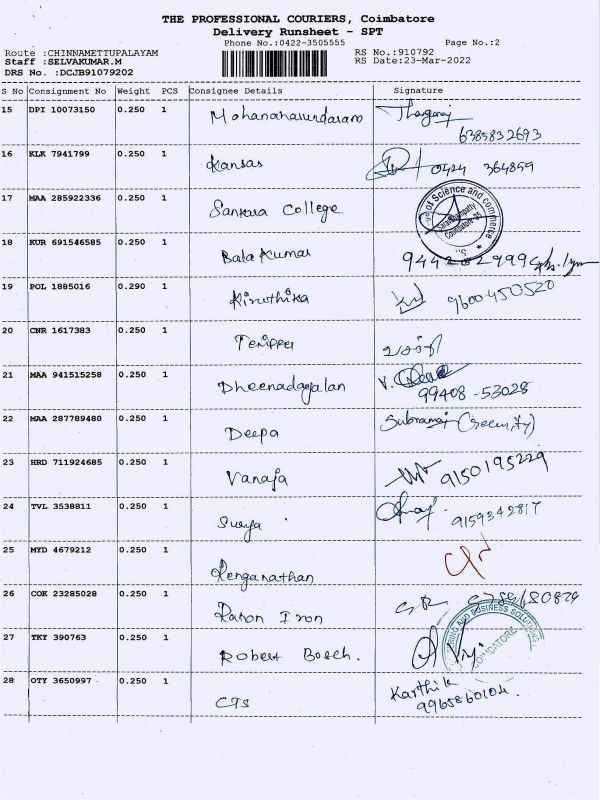 THE PROFESSIONAL COURIERS, Coimbatore
Delivery Runsheet - SPT
Phone No.:0422-3505555 Page No.:2
Route :CHINNAMETTUPALAYAM RS No.:910792
Staff :SELVAKUMAR.M RS Date:23-Mar-2022
DRS No. :DCJB91079202
S No Consignment No Weight PCS Consignee Details Signature
15 DPI 10073150 0.250 1 Mohanahasundaram
6385832693
16 KLK 7941799 0.250 1 Kansas 0424 364859
17 MAA 285922336 0.250 1 Sankara College
of Science and commerce
Saravanampatty
Coimbatore-35
18 KUR 691546585 0.250 1 Bala Kumar
19 POL 1885016 0.290 1 Kiruthika 9600450520
20 CNR 1617383 0.250 1
21 MAA 941515258 0.250 1 Dheenadayalan V.
99408-53028
22 MAA 287789480 0.250 1 Deepa Subramani (Security)
23 HRD 711924685 0.250 1 Vanaja 9150195229
24 TVL 3538811 0.250 1 Surya 9159342817
25 MYD 4679212 0.250 1 Renganathan
26 COK 23285028 0.250 1 Raton Iron
27 TKY 390763 0.250 1 Robert Bosch.
AND BUSINESS SOLUTIONS
COIMBATORE
28 OTY 3650997 0.250 1 CTS Karthik
9965860104.